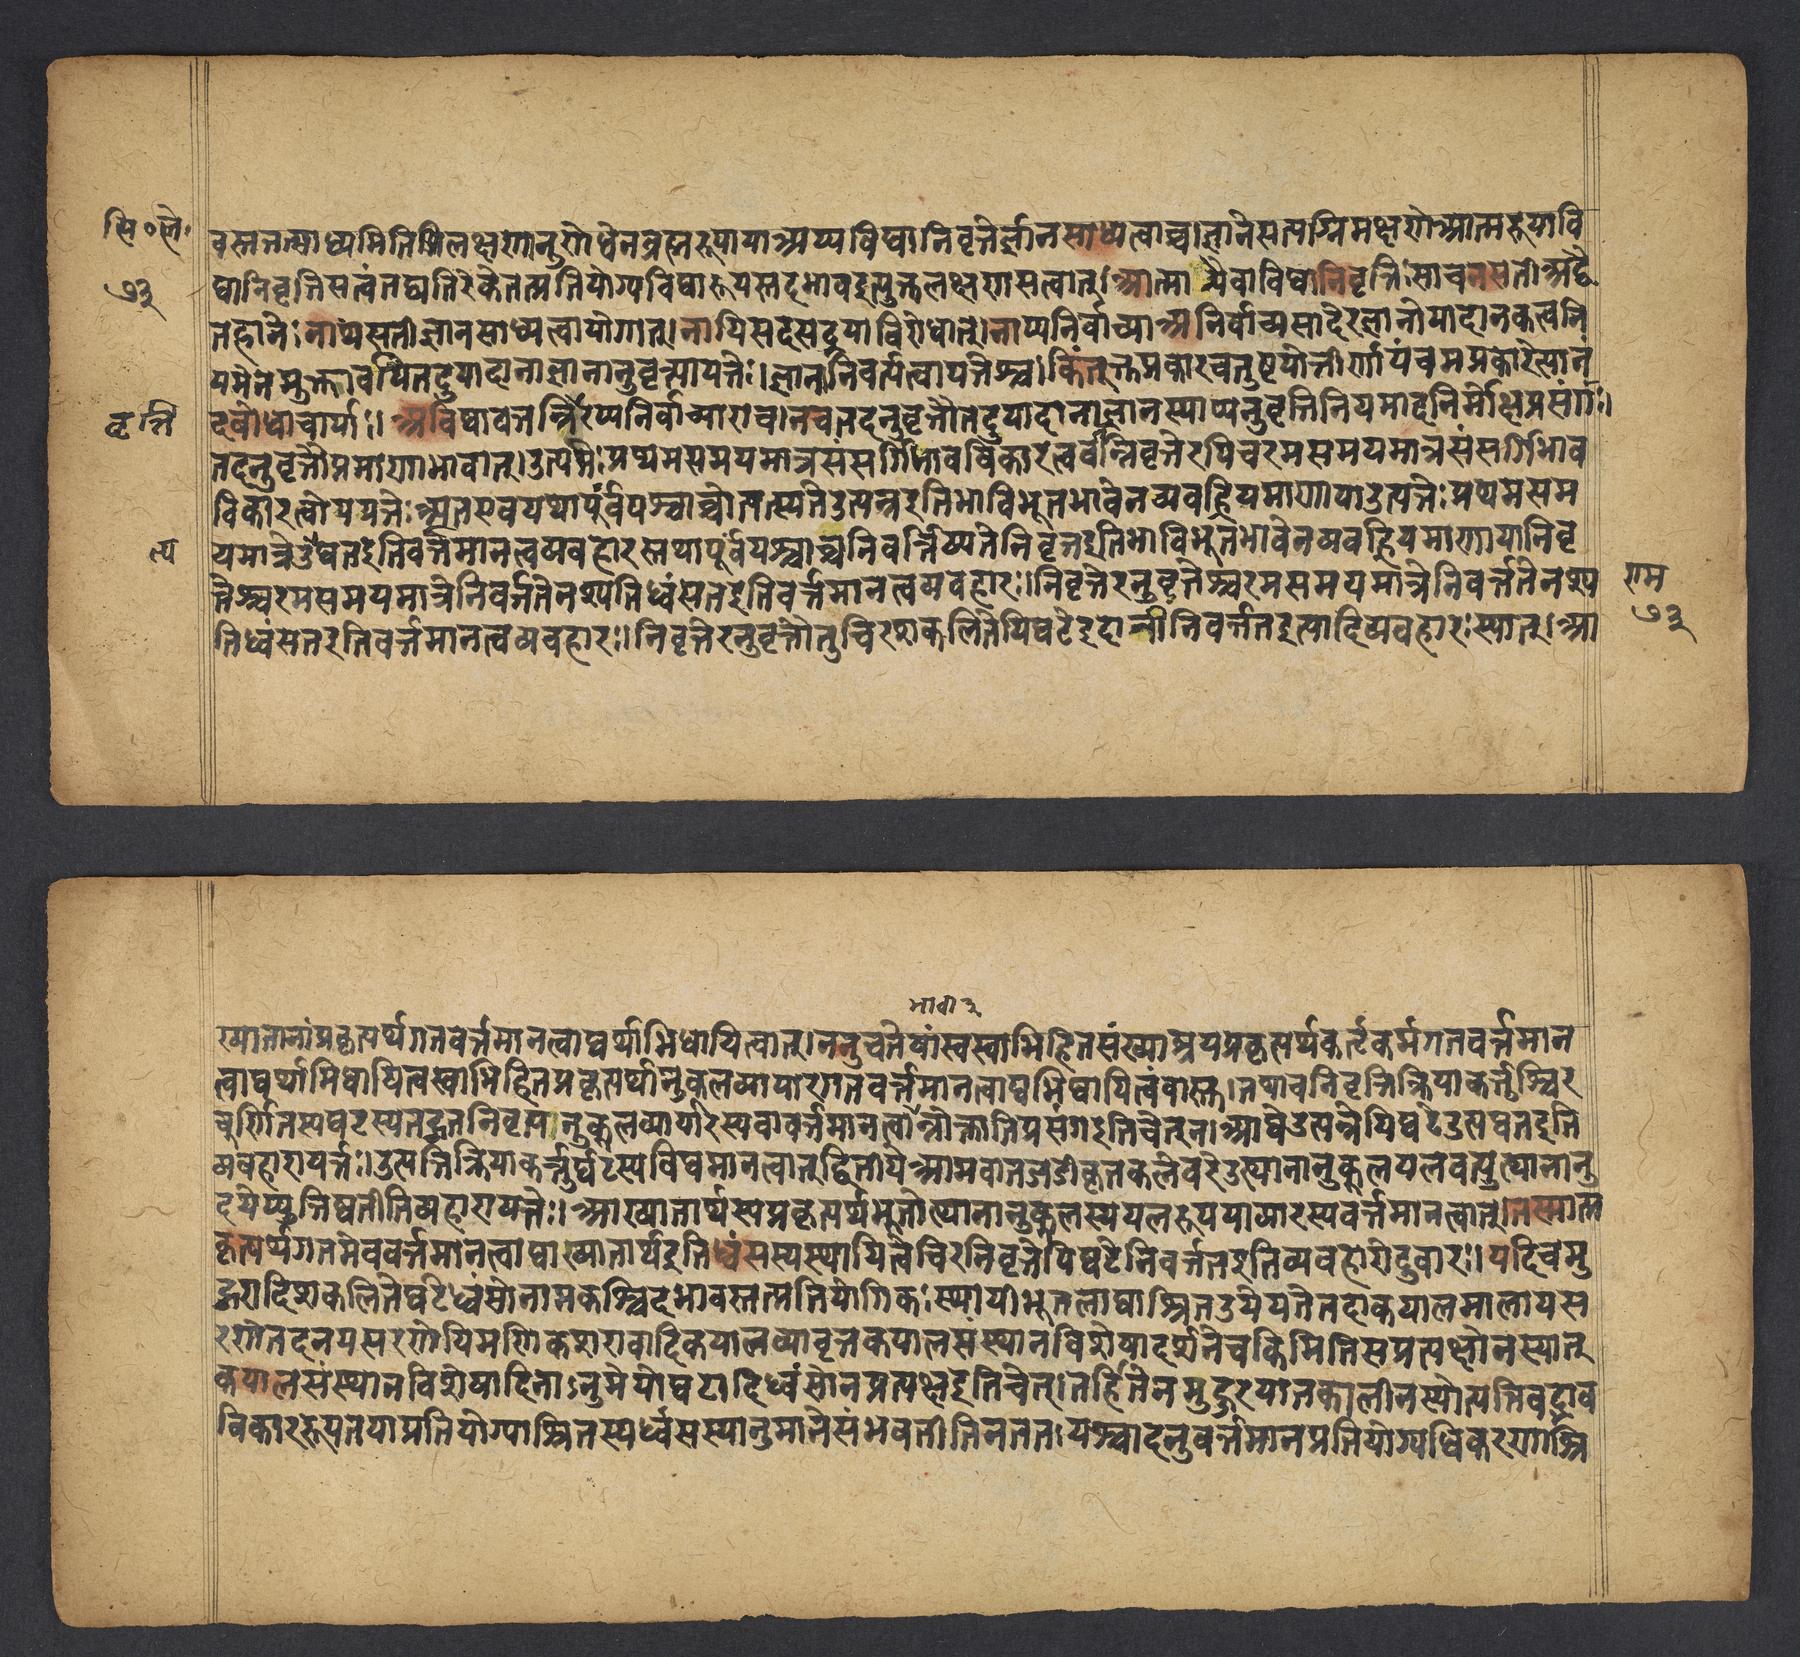 सि॰ले॰
७३
वस्तत्तत्साध्यमिति लक्षणानुरोधेन ब्रह्मरूपाया अप्यविद्यानिवृत्तेर्ज्ञानसाध्यत्वाच्च। ज्ञाने सत्यग्रिमक्षणे आत्मरूपावि
द्यानिवृत्तिसत्वं तद्यतिरेके तत्प्रतियोग्यविद्यारूपस्तदभाव इत्युक्तलक्षणसत्वात्। आत्मान्यैवाविद्यानिवृत्तिः। सा च न सती अद्वै
तहानेः। नाप्यसती ज्ञानसाध्यत्वायोगात्। नापि सदसद्रूपा विरोधात्। नाप्यनिर्वाच्या अनिर्वाच्यसादेरज्ञानोपादानकत्वनि
यमेन मुक्तावपि तदुपादानाज्ञानानुवृत्त्यापत्तेः। ज्ञाननिवर्त्यत्वापत्तेश्च। किंतूक्तप्रकारचतुष्टयोत्तीर्णा पंचमप्रकारेत्यानं
वृत्ति
दबोधाचार्याः। अविद्यावत्तन्निरप्यनिर्वाच्याराव। न च तदनुवृत्तौ तदुपादानाज्ञानस्याप्यनुवृत्तिनियमादनिर्मोक्षप्रसंगः।
तदनुवृत्तौ प्रमाणाभावात्। उत्पत्तेः प्रथमसमयमात्रसंसर्गिभावविकारत्ववन्निवृत्तेरपि चरमसमयमात्रसंसर्गिभाव
विकारत्वोपपत्तेः। अत एव यथा पूर्वं पश्चाच्चोत्पत्स्यते उत्पन्न इति भाविभूतभावेन व्यवह्रियमाणाया उत्पत्तेः प्रथमसम
त्प
यमात्रे उद्यत इति वर्त्तमानत्वव्यवहारस्तथा पूर्वं पश्चाच्च निवर्त्तिष्यते निवृत्त इति भाविभूतभावेन व्यवह्रियमाणाया निवृ
त्तेश्चरमसमयमात्रे निवर्त्तते नश्यति ध्वंसत इति वर्त्तमानत्वव्यवहारः। निवृत्तेरनुवृत्तेश्चरमसमयमात्रे निवर्त्तते नश्य
राम
७३
ति ध्वंसत इति वर्त्तमानत्वव्यवहारः। निवृत्तेरनुवृत्तौ तु चिरशकलितेपि घटे इदानीं निवर्त्तत इत्यादिव्यवहारः स्यात्। आ
ख्यातानां प्रकृत्यर्थगतवर्त्तमानत्वाद्यर्थाभिधायित्वात्। ननु च तेषां स्वस्वाभिहितसंख्याश्रयप्रकृत्यर्थकर्तृकर्मगतवर्त्तमान
त्वाद्यर्थाभिधायित्वं स्वाभिहितप्रकृत्यर्थानुकूलव्यापारगतवर्त्तमानत्वाद्यभिधायित्वं वास्तु। तथा च निवृत्तिक्रियाकर्त्तुश्चिर
चूर्णितस्य घटस्य तद्गतनिवृत्त्यनुकूलव्यापारस्य वावर्त्तमानत्वान्नोक्तातिप्रसंग इति चेत् न। आद्ये उत्पन्नेपि घटे उत्पद्यत इति
व्यवहारापत्तेः। उत्पत्तिक्रियाकर्त्तुर्घटस्य विद्यमानत्वात्। द्वितीये आमवातजडीकृतकलेवरे उत्थानानुकूलयत्नवत्युत्थानानु
दयेप्युत्तिष्ठतीति व्यहारापत्तेः। आख्यातार्थस्य प्रकृत्यर्थभूतोत्थानानुकूलस्य यत्नरूपव्यापारस्य वर्त्तमानत्वात्। तस्मात्प्र
कृत्यर्थगतमेव वर्त्तमानत्वाद्याख्यातार्थ इति ध्वंसस्य स्थायित्वे चिरनिवृत्तेपि घटे निवर्त्तत इति व्यवहारो दुर्वारः। यदि च मु
द्गरादिशकलिते घटे ध्वंसो नाम कश्चिदभावस्तत्प्रतियोगिकः स्थायी भूतलाद्याश्रित उपेयते तदा कपालमालापस
रणे तदनपसरणेपि मणिकशरावादिकपालव्यावृत्तकपालसंस्थानविशेषादर्शने च किमिति स प्रत्यक्षो न स्यात्
कपालसंस्थानविशेषादिनाऽनुमेयो घटादिध्वंसो न प्रत्यक्ष इति चेत्। तर्हि तेन मुद्गरपातकालीनस्योत्पत्तिवद्भाव
विकाररूपतया प्रतियोग्याश्रितस्य ध्वंसस्यानुमानं संभवतीति न ततः पश्चादनुवर्त्तमानप्रतियोग्यधिकरणाश्रि